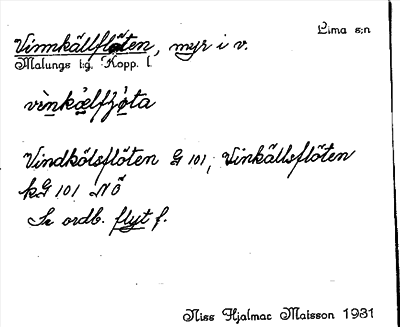 Lima s:n
Vinnkällflöten, myr i v.
Malungs t:g. Kopp. l.
vìnkæ̀lfʃø̀ta
Vindkölsflöten G 101, Vinkällsflöten
kG 101 NÖ
Se ordb. flyt f.
Niss Hjalmar Matsson 1931